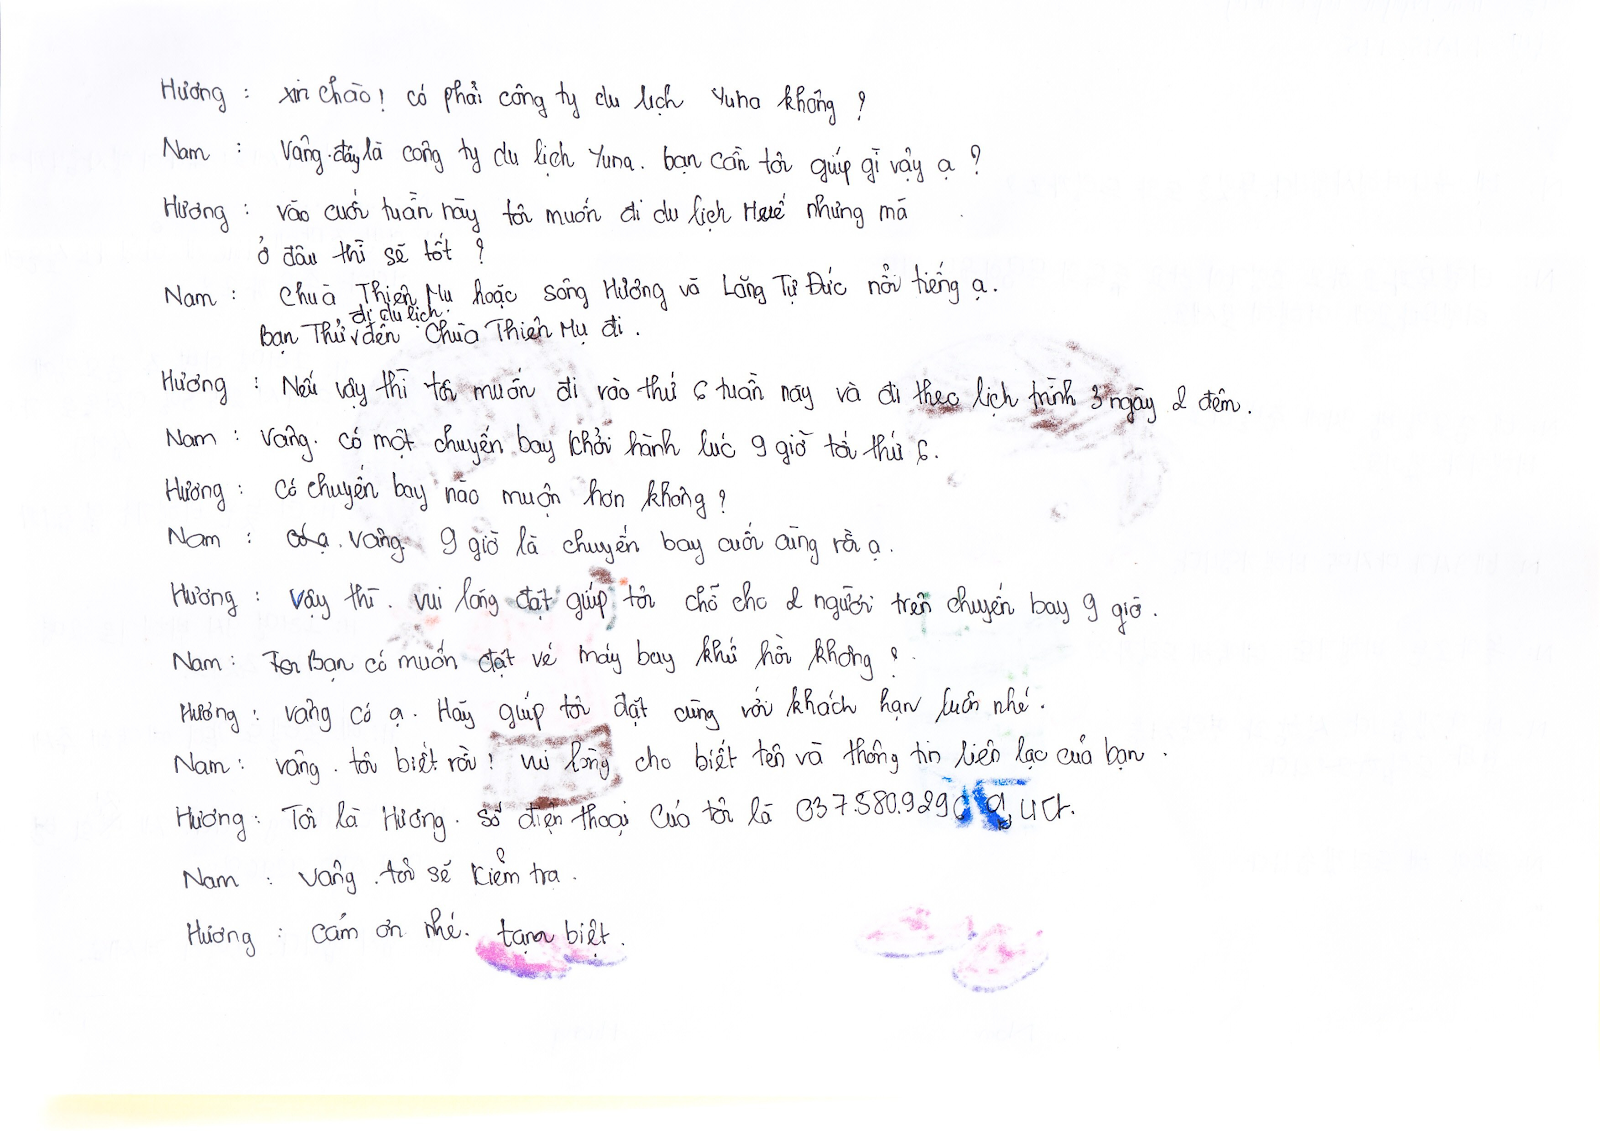 Hương : xin chào! có phải công ty du lịch Yuna không ?
Nam : Vâng. đây là công ty du lịch Yuna. bạn cần tôi giúp gì vậy ạ ?
Hương : vào cuối tuần này tôi muốn đi du lịch Huế nhưng mà
ở đâu thì sẽ tốt ?
Nam : Chuà Thiên Mụ hoặc sông Hương và Lăng Tự Đức nổi tiếng ạ.
đi du lịch.
Bạn Thử đến Chùa Thiên Mụ đi .
Hương : Nếu vậy thì tôi muốn đi vào thứ 6 tuần này và đi theo lịch trình 3 ngày 2 đêm.
Nam : Vâng. có một chuyến bay khởi hành lúc 9 giờ tối thứ 6.
Hương : Có chuyến bay nào muộn hơn không ?
Nam : vâng. 9 giờ là chuyến bay cuối cùng rồi ạ .
Hương : Vậy thì. vui lòng đặt giúp tôi chỗ cho 2 người trên chuyến bay 9 giờ .
Nam : Bạn có muốn đặt vé máy bay khứ hồi không ? .
Hương : vâng có ạ. Hãy giúp tôi đặt cùng với khách hạn luôn nhé.
Nam : vâng . tôi biết rồi ! vui lòng cho biết tên và thông tin liên lạc của bạn .
Hương : Tôi là Hương. số điện thoại của tôi là 037.580.929
Nam : Vâng .tôi sẽ kiểm tra .
Hương : cảm ơn nhé. tạm biệt .